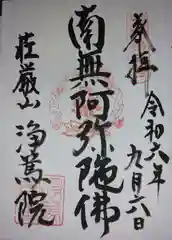 奉拝
令和六年
九月六日
南無阿弥陀佛
荘厳山
浄篤院